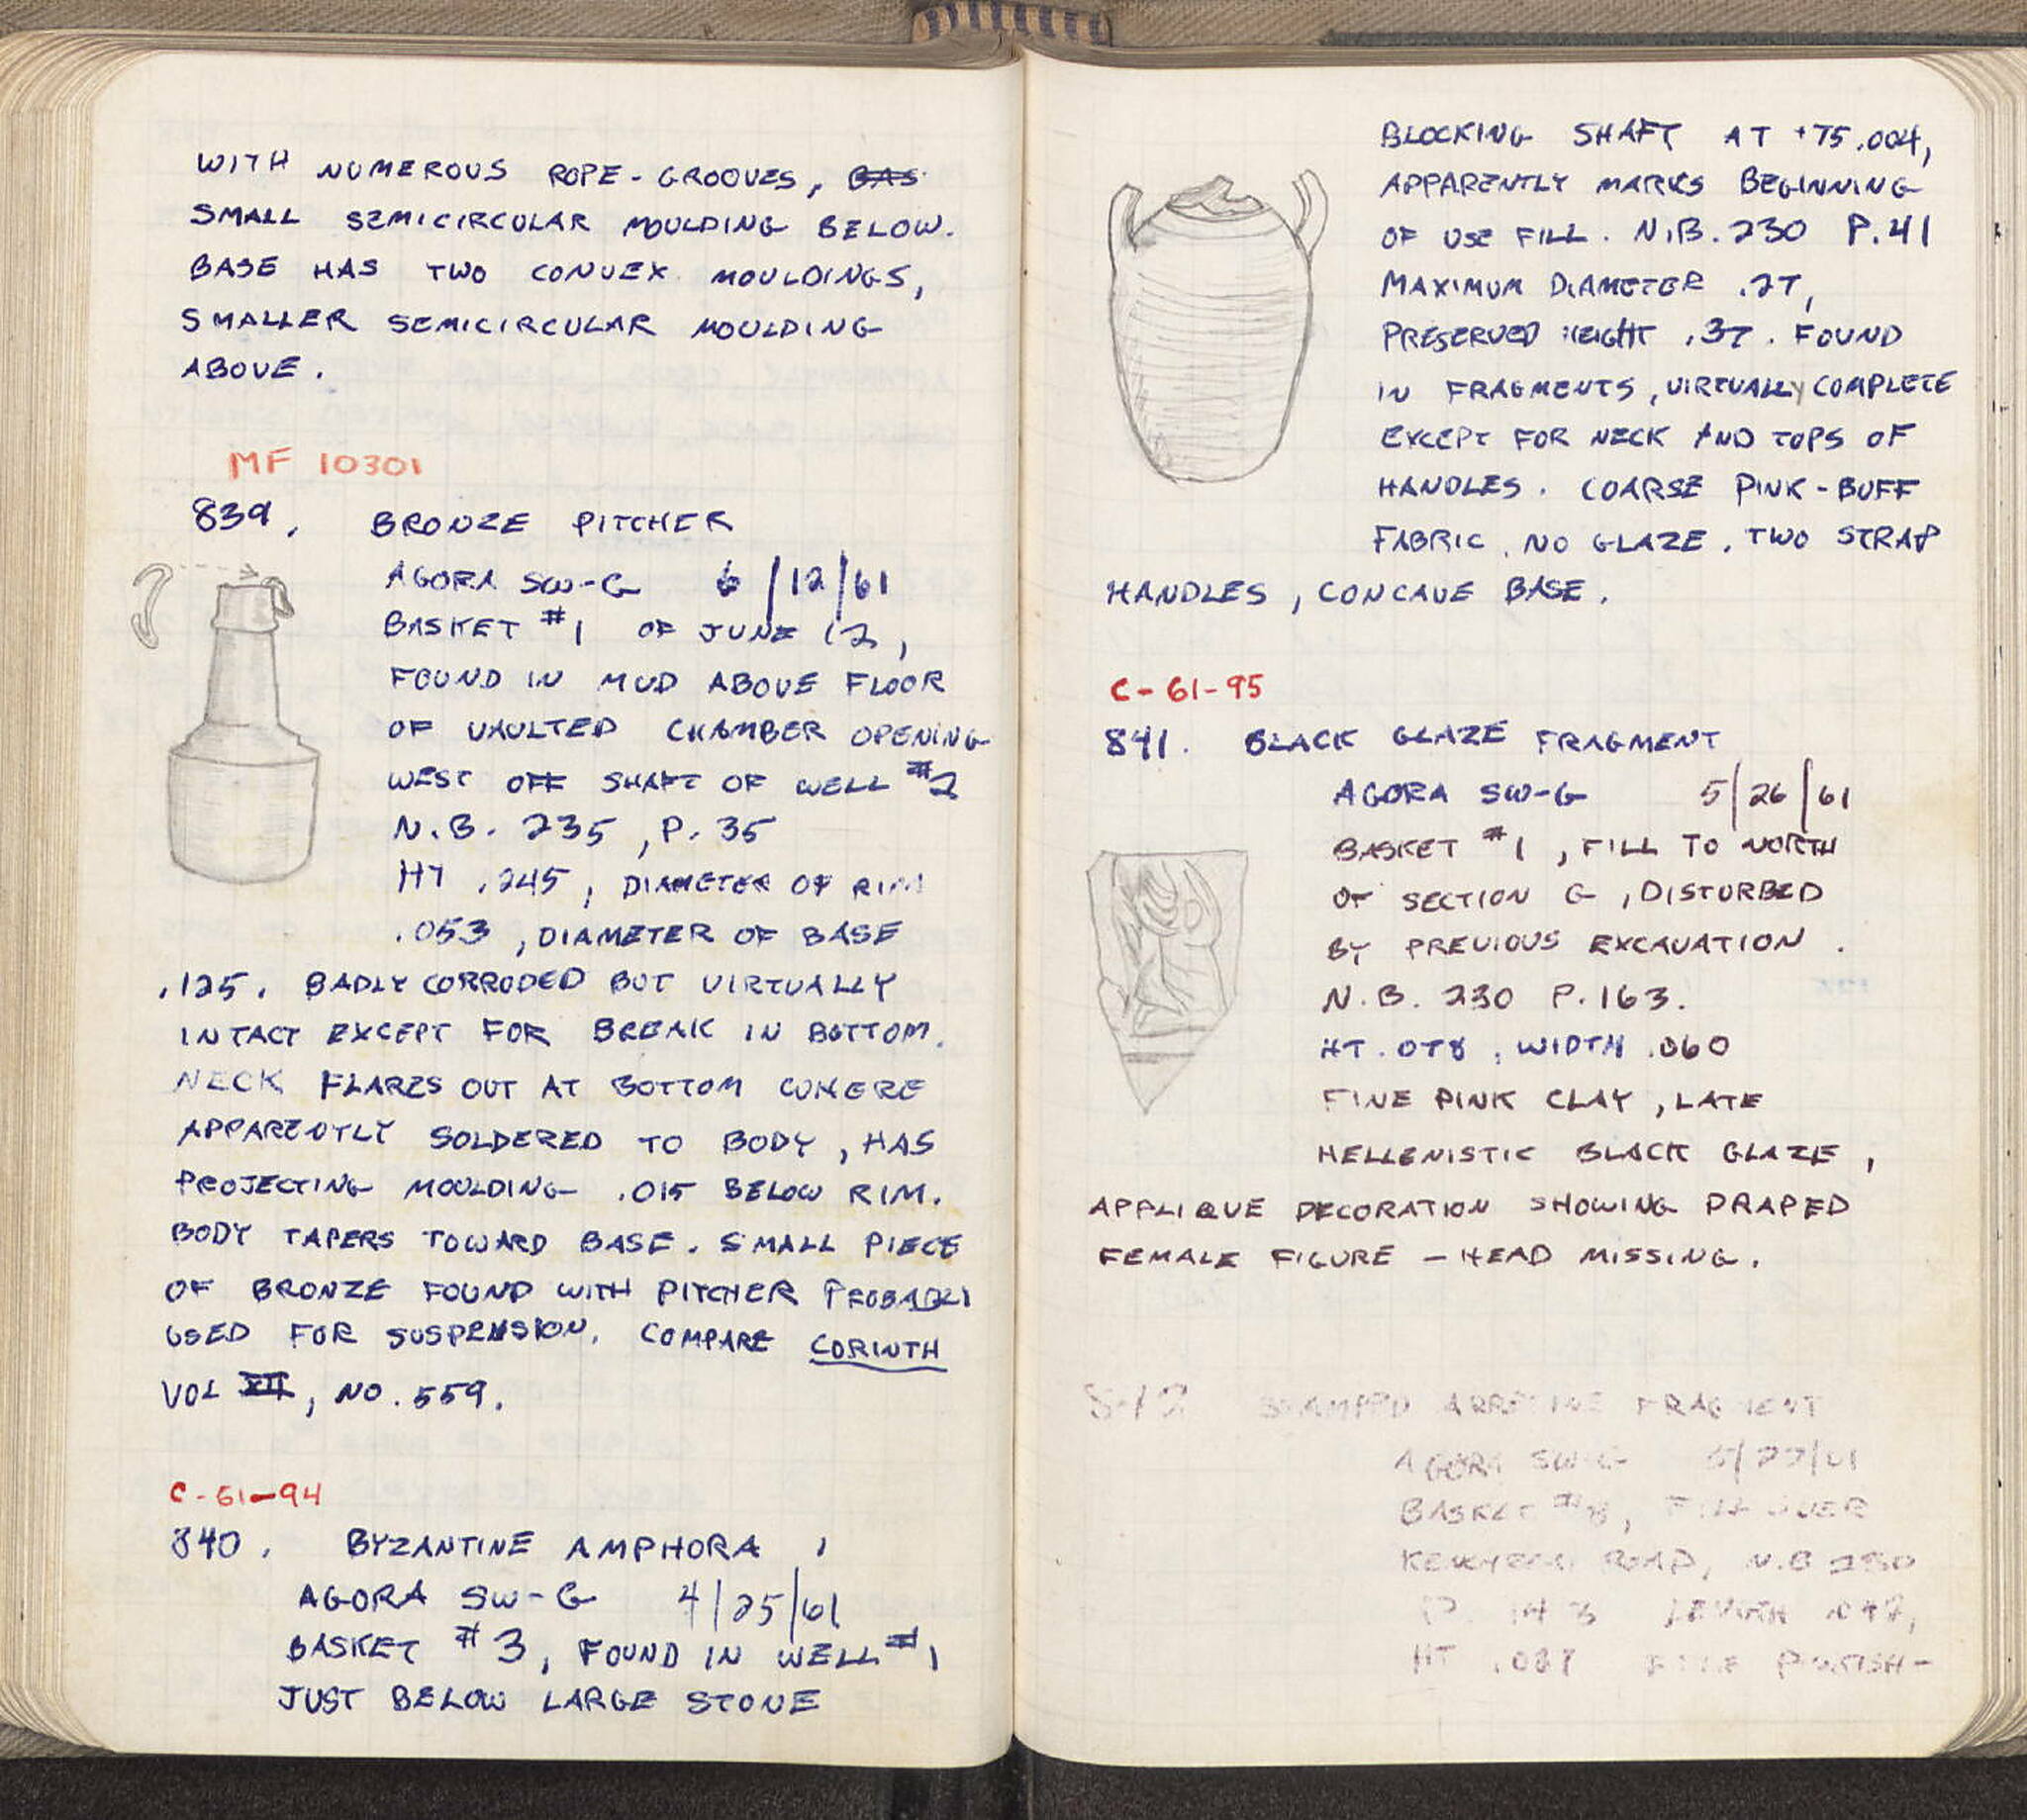 WITH NUMEROUS ROPE-GROOVES, BAS
SMALL SEMICIRCULAR MOULDING BELOW.
BASE HAS TWO CONVEX MOULDINGS,
SMALLER SEMICIRCULAR MOULDING
ABOVE.
MF 10301
839. BRONZE PITCHER
AGORA SW-G 6/12/61
BASKET #1 OF JUNE 12,
FOUND IN MUD ABOVE FLOOR
OF VAULTED CHAMBER OPENING
WEST OFF SHAFT OF WELL #2
N.B. 235, P. 35
HT .245, DIAMETER OF RIM
.053, DIAMETER OF BASE
.125. BADLY CORRODED BUT VIRTUALLY
INTACT EXCEPT FOR BREAK IN BOTTOM.
NECK FLARES OUT AT BOTTOM WHERE
APPARENTLY SOLDERED TO BODY, HAS
PROJECTING MOULDING .015 BELOW RIM.
BODY TAPERS TOWARD BASE. SMALL PIECE
OF BRONZE FOUND WITH PITCHER PROBABLY
USED FOR SUSPENSION. COMPARE CORINTH
VOL XII, NO. 559.
C-61-94
840. BYZANTINE AMPHORA,
AGORA SW-G 4/25/61
BASKET #3, FOUND IN WELL #1
JUST BELOW LARGE STONE
BLOCKING SHAFT AT +75.004,
APPARENTLY MARKS BEGINNING
OF USE FILL. N.B. 230 P. 41
MAXIMUM DIAMETER .27,
PRESERVED HEIGHT .37. FOUND
IN FRAGMENTS, VIRTUALLY COMPLETE
EXCEPT FOR NECK AND TOPS OF
HANDLES. COARSE PINK-BUFF
FABRIC, NO GLAZE. TWO STRAP
HANDLES, CONCAVE BASE.
C-61-95
841. BLACK GLAZE FRAGMENT
AGORA SW-G 5/26/61
BASKET #1, FILL TO NORTH
OF SECTION G, DISTURBED
BY PREVIOUS EXCAVATION.
N.B. 230 P. 163.
HT .078, WIDTH .060
FINE PINK CLAY, LATE
HELLENISTIC BLACK GLAZE,
APPLIQUE DECORATION SHOWING DRAPED
FEMALE FIGURE - HEAD MISSING.
842 STAMPED ARRETINE FRAGMENT
AGORA SW-G
BASKET #8, FILL OVER
ROAD, N.B 230
P. 143 LENGTH
HT FINE PINKISH-